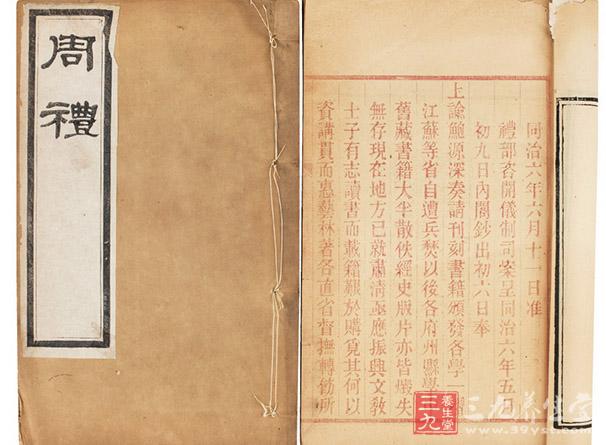 周禮
同治六年六月十一日准
禮部咨開儀制司案呈同治六年五月
初九日內閣鈔出初六日奉
上諭鮑源深奏請刊刻書籍頒發各學一
江蘇等省自遭兵燹以後各府州縣學
舊藏書籍大半散佚經史版片亦皆燬失
無存現在地方已就肅清亟應振興文教
士子有志讀書而載籍艱於購覓其何以
資講貫而惠藝林著各直省督撫轉飭所
三九
養生堂
三九养生堂
www.39yst.com